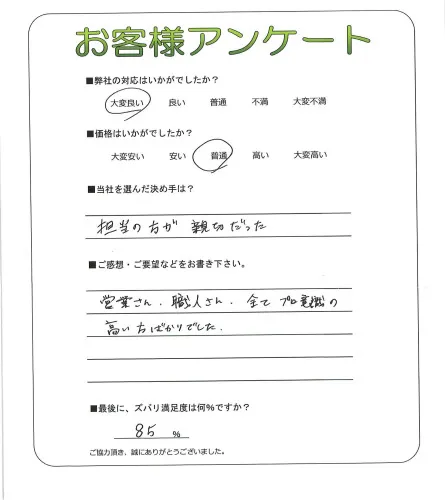 お客様アンケート
■弊社の対応はいかがでしたか？
大変良い 良い 普通 不満 大変不満
■価格はいかがでしたか？
大変安い 安い 普通 高い 大変高い
■当社を選んだ決め手は？
担当の方が 親切だった
■ご感想・ご要望などをお書き下さい。
営業さん、職人さん、全て プロ意識の
高い方ばかりでした.
■最後に、ズバリ満足度は何％ですか？
85 %
ご協力頂き、誠にありがとうございました。